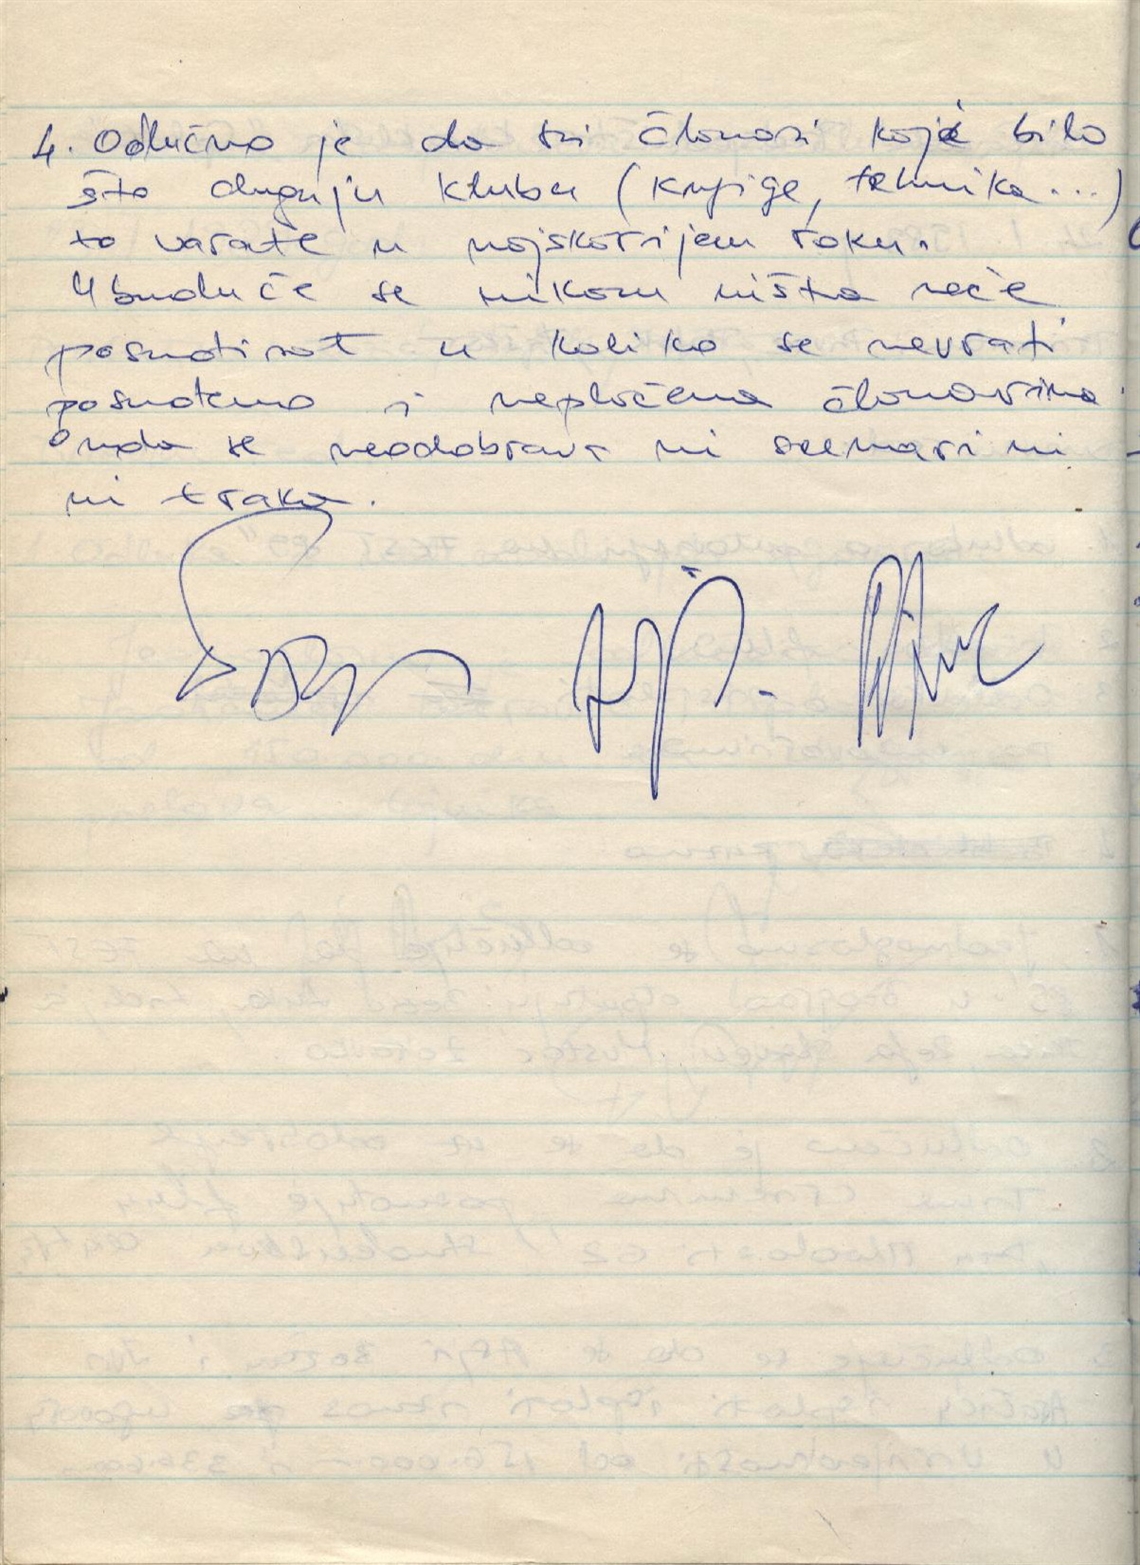 4. Odlučno je da svi članovi koji bilo
što duguju klubu (knjige, tehnika...)
to vrate u najskorijem roku.
Ubuduće se nikom ništa neće
posuđivat u koliko se nevrati
posuđeno i neplaćena članarina.
Onda se neodobrava ni scenarij ni
ni traka.